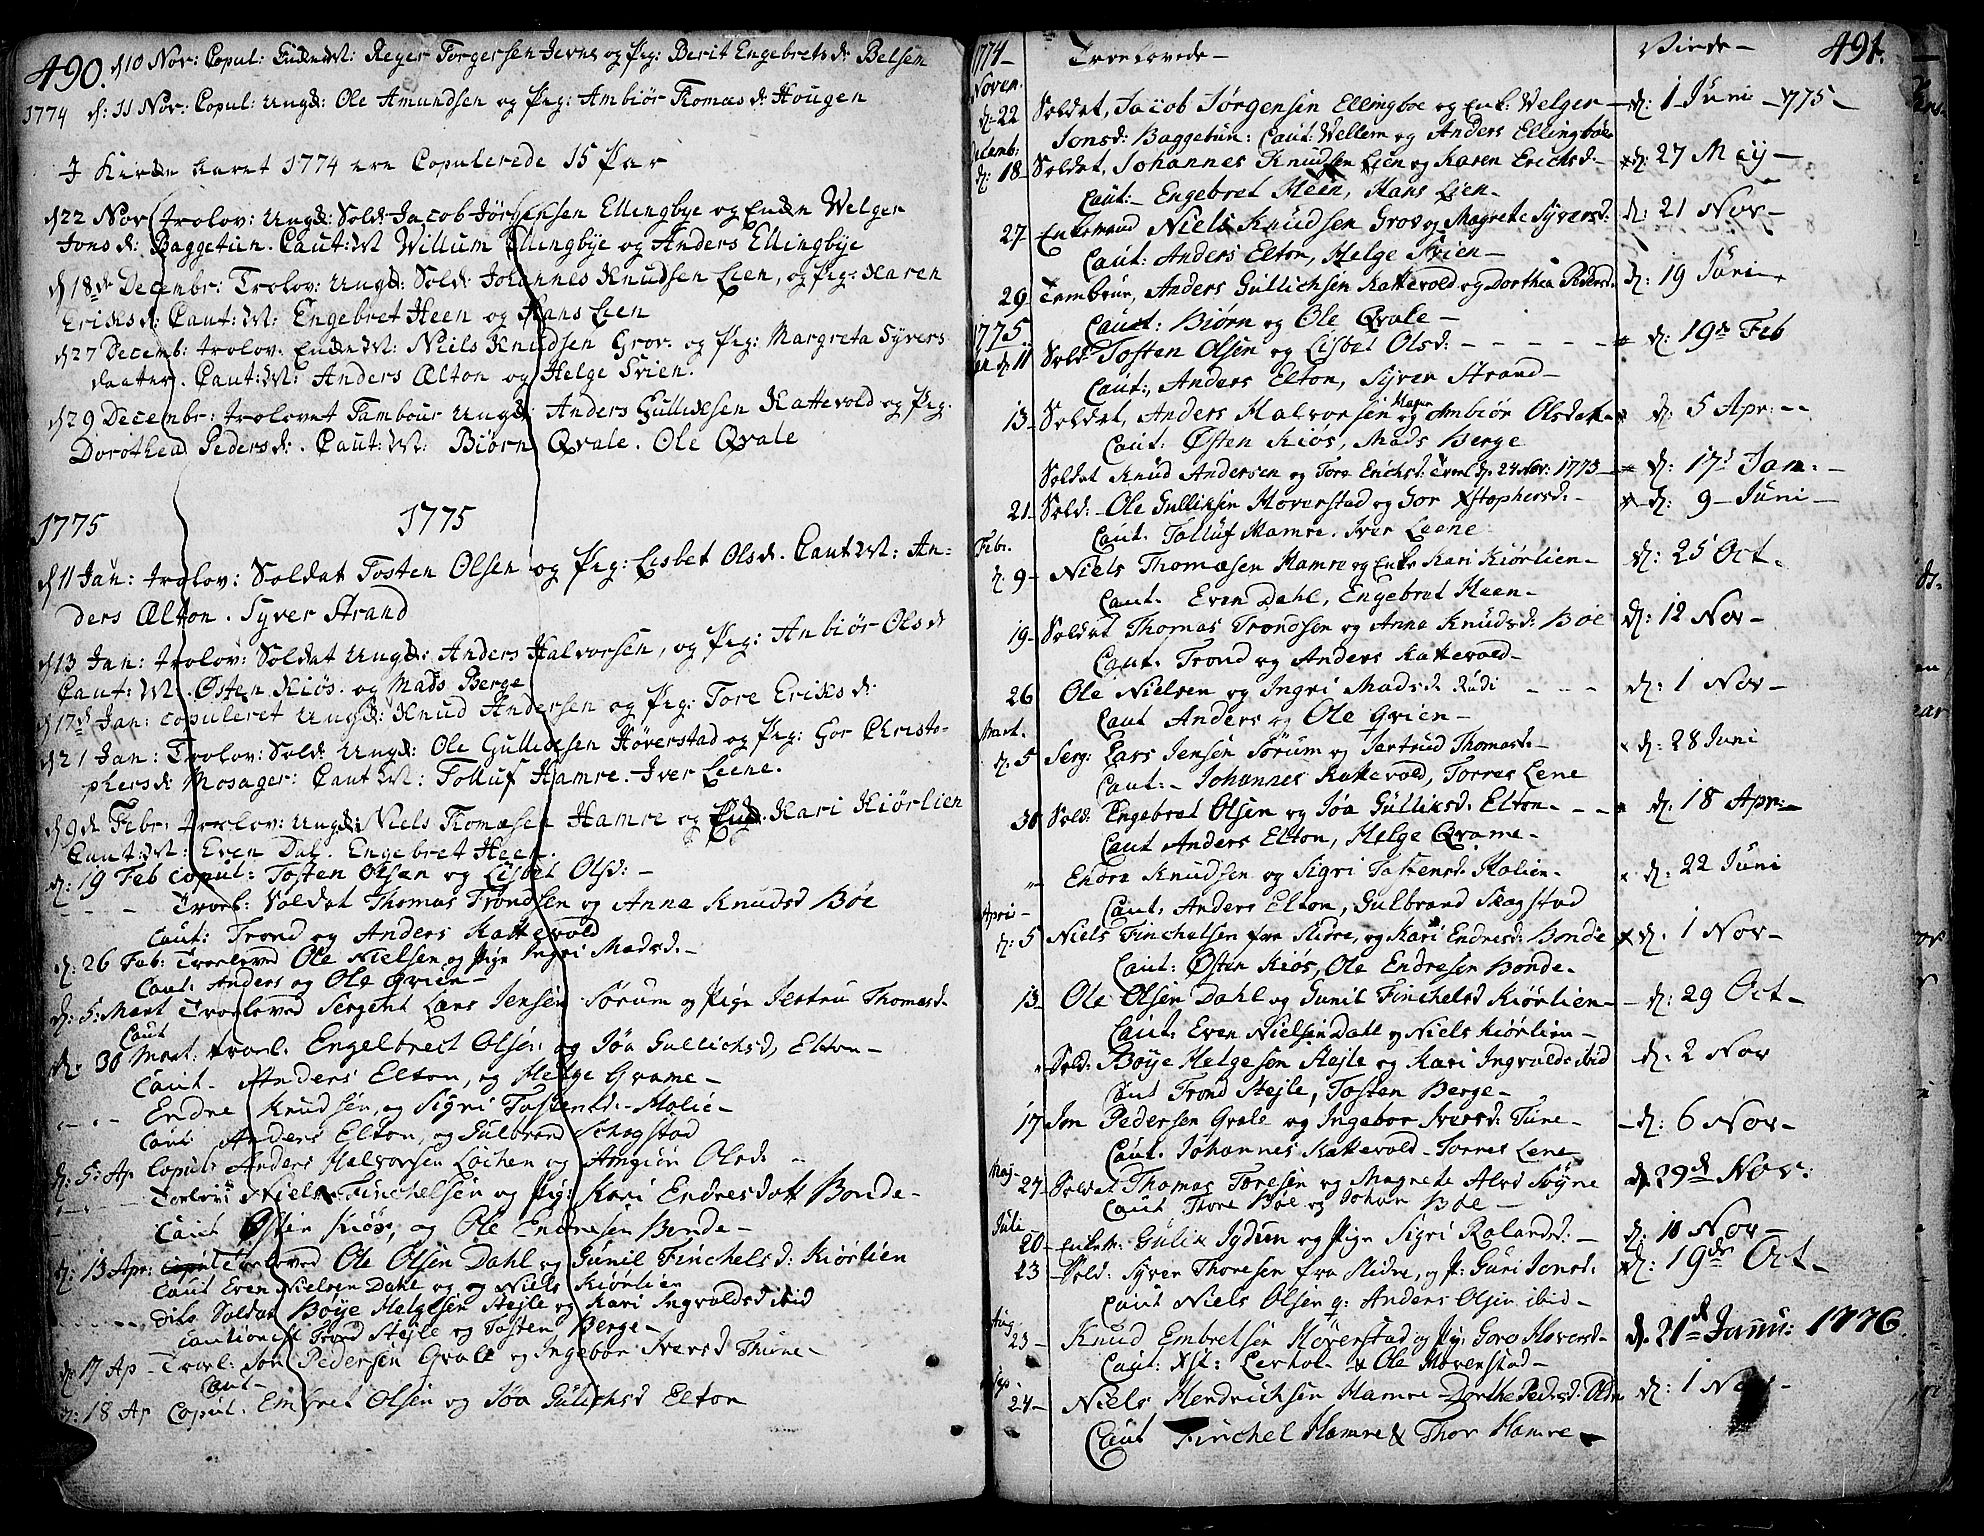 490. d 10 Nov: Copul: Enkem: Reger Torgersen Jerns og Pig: Berit Engebretsd: Belsen
1774 d: 11 Nov: Copul: Ungk: Ole Amundsen og Pig: Ambiør Thomæs d: Hougen
I Kirken Aaret 1774 ere Copulerede 15 Par
d 22 Nov trolov: Ungk: Sold: Jacob Jørgensen Ellingbye og Enken Welger
Jons d: Baggetun. Caut: M Willum Ellingbye og Anders Ellingbye
d 18de Decembr: Trolov: Ungk: Sold: Johannes Knudsen Lien, og Pig: Karen
Eriks d: Caut: M: Engebret Heen og Hans Lien
d 27 Decemb: trolov. Enkem: Niels Knudsen Grov. og Pig: Margreta Syvers
daatter. Caut: M: Anders Ælton og Helge Frien.
d 29 Decembr: trolovet Tambour Ungk: Anders Gulliksen Kattevold og Pig:
Dorothea Peders d:. Caut: M: Biørn Qvale. Ole Qvale
1775 1775
d 11 Jan: trolov: Soldat Tosten Olsen og Pig: Lisbet Olsd. Caut M: An-
ders Ælton. Syver Strand
d 13 Jan: trolov: Soldat Ungk: Anders Halvorsen, og Pig: Anbiør Ols d
Caut: M: Østen Kiøs. og Mads Berge
d 17d Jan: copuleret Ungk: Knud Andersen og Pig: Tore Eriks d:
d 21 Jan: Trolov: Sold: Ungk: Ole Gulliksen Høverstad og Pig: Gor Christo-
phers d: Mosager: Caut M: Tolluf Hamre. Iver Leene.
d 9 d Febr: trolov: Ungk: Niels Thomæsen Hamre og Enk: Kari Kiørlien
Caut: M: Even Dal. Engebret Heen.
d: 19 Feb copul: Tosten Olsen og Lisbet Olsd: -
- - - Troel: Soldat Thomas Trondsen og Anna Knudsd Bøe
Caut: Trond og Anders Kattevold
d: 26 Feb: Troelovd Ole Nielsen og Pige Ingri Madsd. -
Caut: Anders og Ole Grien -
d: 5: Mart Troelovd Sergent Lars Jensen Sørum og Pige Jertru Thomasd.
Caut
d: 30 Mart. troel. Engelbrect Olsen og Jøa Gullichsd, Elton -
Caut. Anders Elton, og Helge Grame -
- - - Endre Knudsen, og Sigri Tostensd. - Molie -
Caut Anders Elton, og Gulbrand Schogstad
d: 5: Ap Copul: Anders Halvorsen Lochen og Angiør Olsd. -
- - - Troelov: Niels Finchelsen og Pig: Kari Endresdatt Bonde -
Caut Østen Kiøs, og Ole Endresen Bonde -
d: 13 Apr: Troelovd Ole Olsen Dahl og Gunil Finchelsd: Kiørlien
Caut Even Nielsen Dahl og og Niels Kiørlien
- - - dito Soldat Bøye Helgesen Hejle og Kari Ingvoldsd ibid
Cautionist Trond Hejle og Tosten Berge -
d: 17 Ap - Troel: Jon Pedersen Qvale og Ingebor Iversd Thune -
Caut -
d: 18 Ap Copul. Embret Olsen og Jøa Gulichsd Elton
1774 - Troelovede - Viede - 491.
Noven.
d: 22 Soldat, Jacob Jørgensen Ellingboe og Enk: Welger - d: 1 Juni - 775 -
Jonsd: Baggetun: Caut: Wellem og Anders Ellingboe
Decemb:
d: 18 - Soldat, Johannes Knudsen Lien og Karen Erichsd - d: 27 Mey -
Caut: - Engebret Heen, Hans Lien -
27 Enkemand Niels Knudsen Grov og Magrete Syversd: d: 21 Nov -
Caut: Anders Elton, Helge Frien -
29 Tambour, Anders Gullichsen Kattevold og Dorthea Pedersd. d: 19 Juni
1775 Caut: Biørn og Ole Qvale -
Jan d: 11 Sold: Tosten Olsen og Lisbet Olsd: - - - - - d: 19de Feb
Caut:, Anders Elton, Syver Strand -
13 - Soldat, Anders Halvorsen og Ambiør Olsdat - d: 5 Apr: - -
Caut: Østen Kiøs, Mads Berge
Soldat Knud Andersen og Tore Erichsd: Troel d: 24 Nov: 1773 - d: 17d Jan: -
21 - Sold: - Ole Gulliksen Høverstad og Gor Xstophersd: - d: 9 - Juni -
Caut. Tolluf Hamre. Iver Leene
Febr.
d: 9 - Niels Thomæsen Hamre og Enke Kari Kiørlien - d: 25 Oct -
Caut. Even Dahl, Engebret Heen -
19 - Soldat Thomas Trondsen og Anna Knudsd: Bøe d: 12 Nov -
Caut. Trond og Anders Kattevold -
26 Ole Nielsen og Ingri Madsd. Rudi - - - d: 1 Nov -
Caut Anders og Ole Grien -
Mart.
d: 5 Serg: Lars Jensen Sørum og Jertrud Thomasd: - d: 28 Juni
Caut: - Johannes Kattevold, Torres Lene
30 Sold: Engebret Olsen og Jøa Gulliksd: Elton - - - d: 18 Apr: -
Caut Anders Elton, Helge Qvame -
- Endre Knudsen og Sigri Tostensd: Molien - d: 22 Juni
Caut: Anders Elton, Gulbrand Skogstad
April -
d: 5 Niels Finchelsen fra Slidre, og Kari Endresd: Bonde d: 1 Nov -
Caut: Østen Kiøs, Ole Endresen Bonde -
13 - Ole Olsen Dahl og Gunil Finchelsd Kiørlien - d: 29 Oct -
Caut: Even Nielsen Dahl og Niels Kiørlien -
- Sold: Bøye Helgesen Hejle og Kari Ingvoldsd ibid d: 2 Nov
Caut Trond Hejle, Tosten Berge -
17 Jon Pedersen Qvale og Ingebor Iversd: Tune - d: 6 Nov -
Caut. Johannes Kattevold - Torres Lene
Maj -
27 - Soldat Thomas Toresen og Magrete Alvsd Søgne d. 29d Nov:
Caut Thore Bøe og Johan Bøe -
Juli
20 - Enkem: Gulik Jydeen og Pige Sigri Rolandsd: - d: 10 Nov -
23 - Sold: Syver Thoresen fra Slidre, og P: Guri Jonsd: d: 19de Oct -
Caut Niels Olsen og: Anders Olsen ibid -
Aug.
23 - Knud Embretsen Høverstad og Pig: Goro Haversd - d. 21d Janu: 1776.
Caut: Xst: Lerhol - & Ole Hoverstad -
Sep
24 - Niels Hendrichsen Hamre - Dorthe Pedersd: d: 1 Nov -
Caut Finchel Hamre & Thor Hamre -